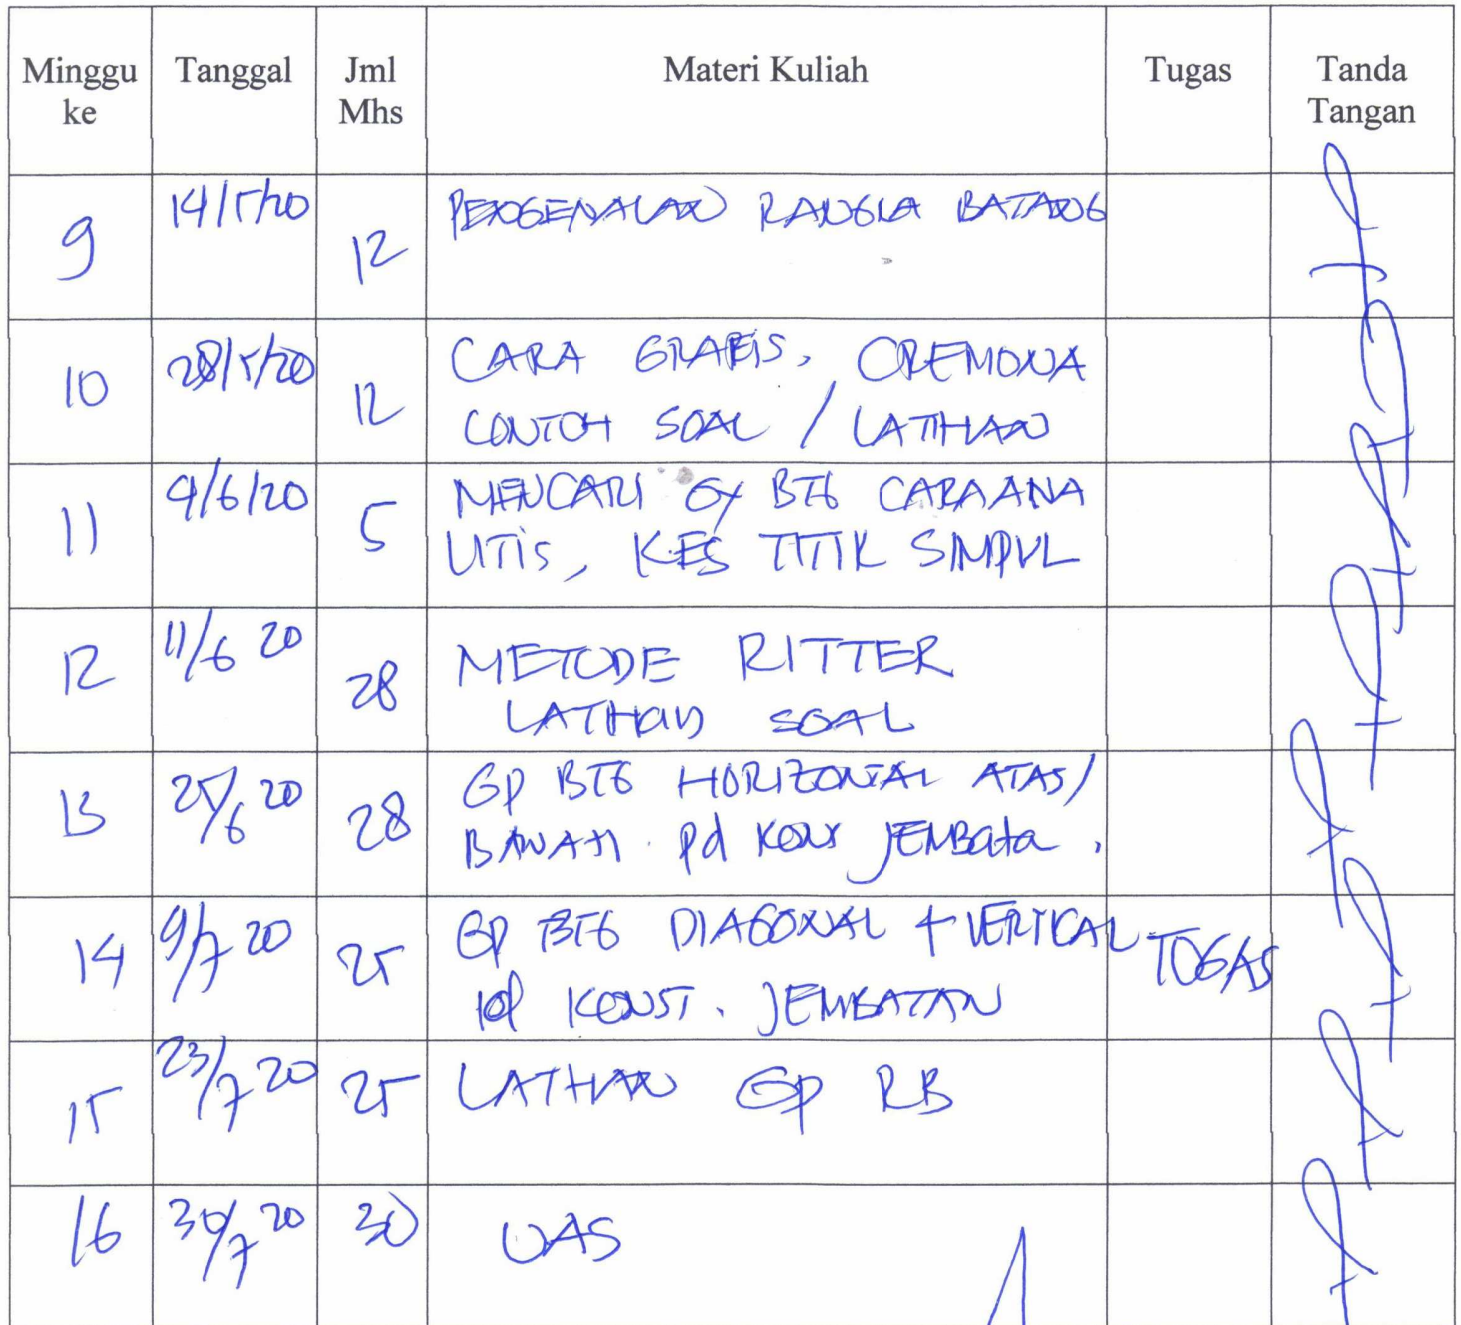 Minggu ke Tanggal Jml Mhs Materi Kuliah Tugas Tanda Tangan
9 14/5/20 12 PENGENALAN RANGKA BATANG
10 28/5/20 12 CARA GRAFIS, CREMONA
CONTOH SOAL / LATIHAN
11 9/6/20 5 MENCARI GY BTG CARA ANA
LITIS, KES TITIK SIMPUL
12 11/6 20 28 METODE RITTER
LATIHAN SOAL
13 25/6 20 28 GP BTG HORIZONTAL ATAS/
BAWAH. pd KONS JEMBATA.
14 9/7 20 25 GP BTG DIAGONAL + VERTICAL TUGAS
pd KONST. JEMBATAN
15 23/7 20 25 LATIHAN GP RB
16 30/7 20 30 UAS